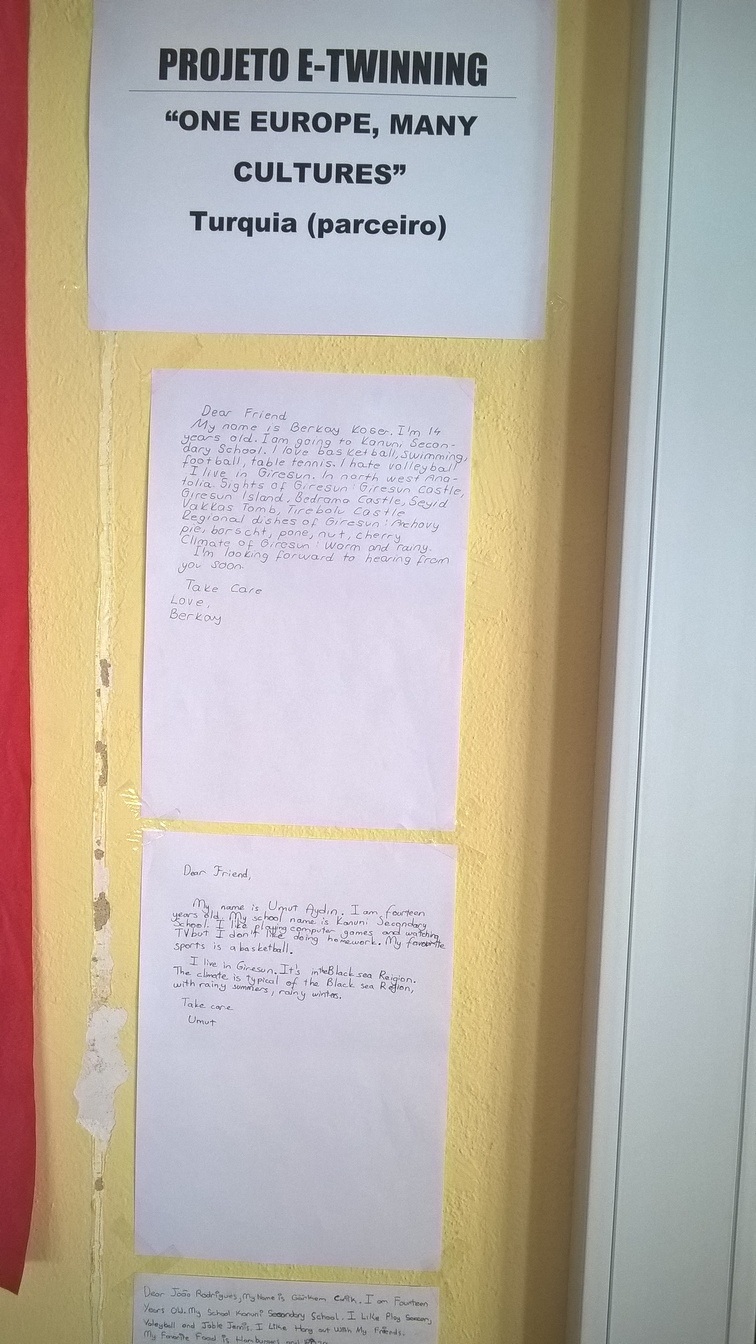 PROJETO E-TWINNING
“ONE EUROPE, MANY
CULTURES”
Turquia (parceiro)
Dear Friend
My name is Berkay Koser. I'm 14
years old. I am going to Kanuni Secon-
dary School. I love basketball, swimming,
football, table tennis. I hate volleyball
I live in Giresun. In north west Ana-
tolia. Sights of Giresun: Giresun Castle,
Giresun Island, Bedrama Castle, Seyid
Vakkas Tomb, Tirebolu Castle
Regional dishes of Giresun: Anchovy
pie, borscht, pone, nut, cherry
Climate of Giresun: Worm and rainy.
I'm looking forward to hearing from
you soon.
Take Care
Love,
Berkay
Dear Friend,
My name is Umut Aydın. I am fourteen
years old. My school name is Kanuni Secondary
School. I like playing computer games and watching
TV but I don't like doing homework. My favourite
sports is a basketball.
I live in Giresun. It's in the Black sea Reigion.
The climate is typical of the Black sea Region,
with rainy summers, rainy winters.
Take care
Umut
Dear João Rodrigues, My Name is I am Fourteen
Years Old. My School Kanuni Secondary School. I Like Play Soccer,
Voleyball and Table Tennis. I Like Hang out With My Friends.
My Favorite Food is Hamburger and